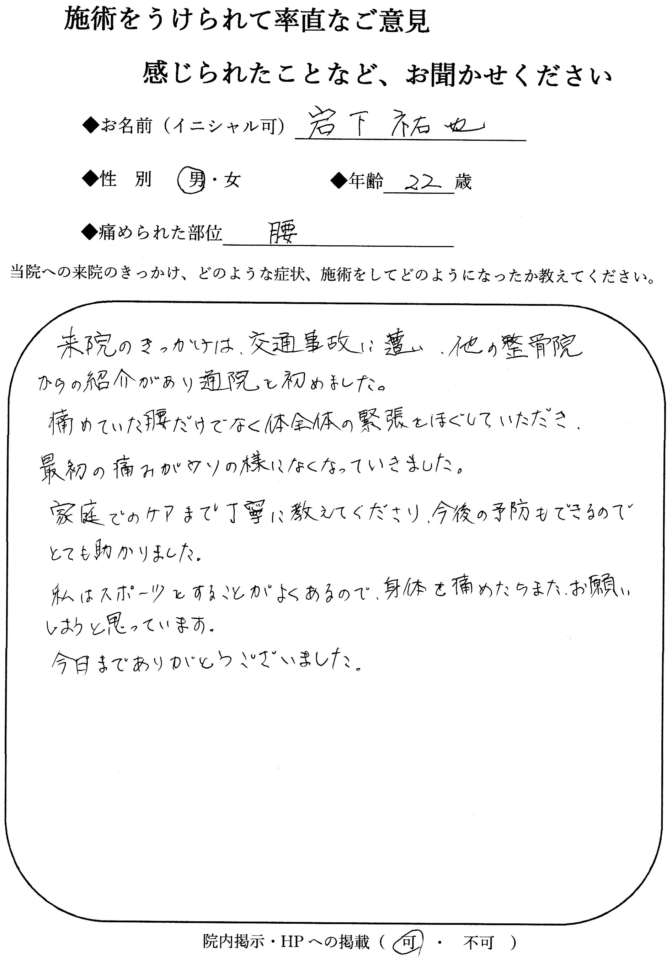 施術をうけられて率直なご意見
感じられたことなど、お聞かせください
◆お名前（イニシャル可）岩下 祐也
◆性 別 男・女 ◆年齢 22 歳
◆痛められた部位 腰
当院への来院のきっかけ、どのような症状、施術をしてどのようになったか教えてください。
来院のきっかけは、交通事故に遭い、他の整骨院
からの紹介があり通院を初めました。
痛めていた腰だけでなく体全体の緊張をほぐしていただき、
最初の痛みがウソの様になくなっていきました。
家庭でのケアまで丁寧に教えてくださり、今後の予防もできるので
とても助かりました。
私はスポーツをすることがよくあるので、身体を痛めたらまた、お願い
しようと思っています。
今日までありがとうございました。
院内掲示・HPへの掲載（ 可 ・ 不可 ）